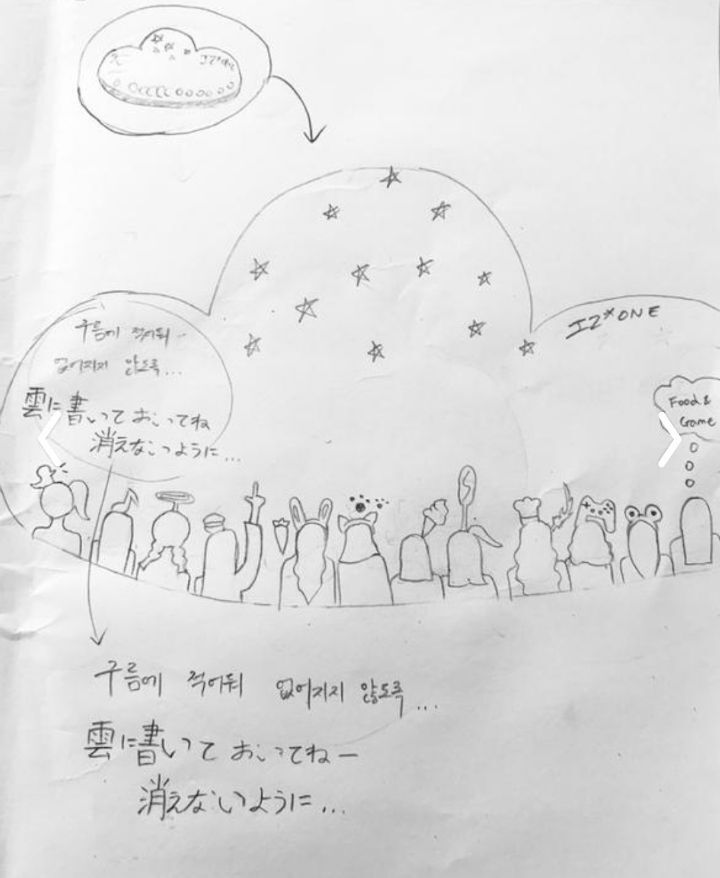 IZ*ONE
구름에 적어둬
없어지지 않도록...
雲に書いておいってね
消えないように...
Food &
Game
구름에 적어둬 없어지지 않도록...
雲に書いて おいってねー
消えないように...